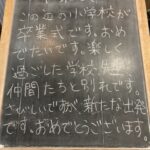 この丘の小学校が
卒業式です。おめ
でたいです。楽しく
過ごした学校、先生
仲間たちと別れです。
さびしいですが新たな出発
です。おめでとうございます。